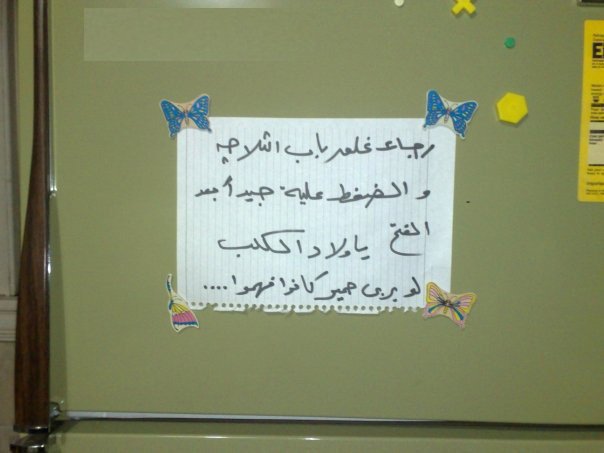 رجاء غلق باب الثلاجه
والضغط علية جيد أ بعد
الفتح ياولاد الكلب
لو بربى حمير كانوا فهموا....